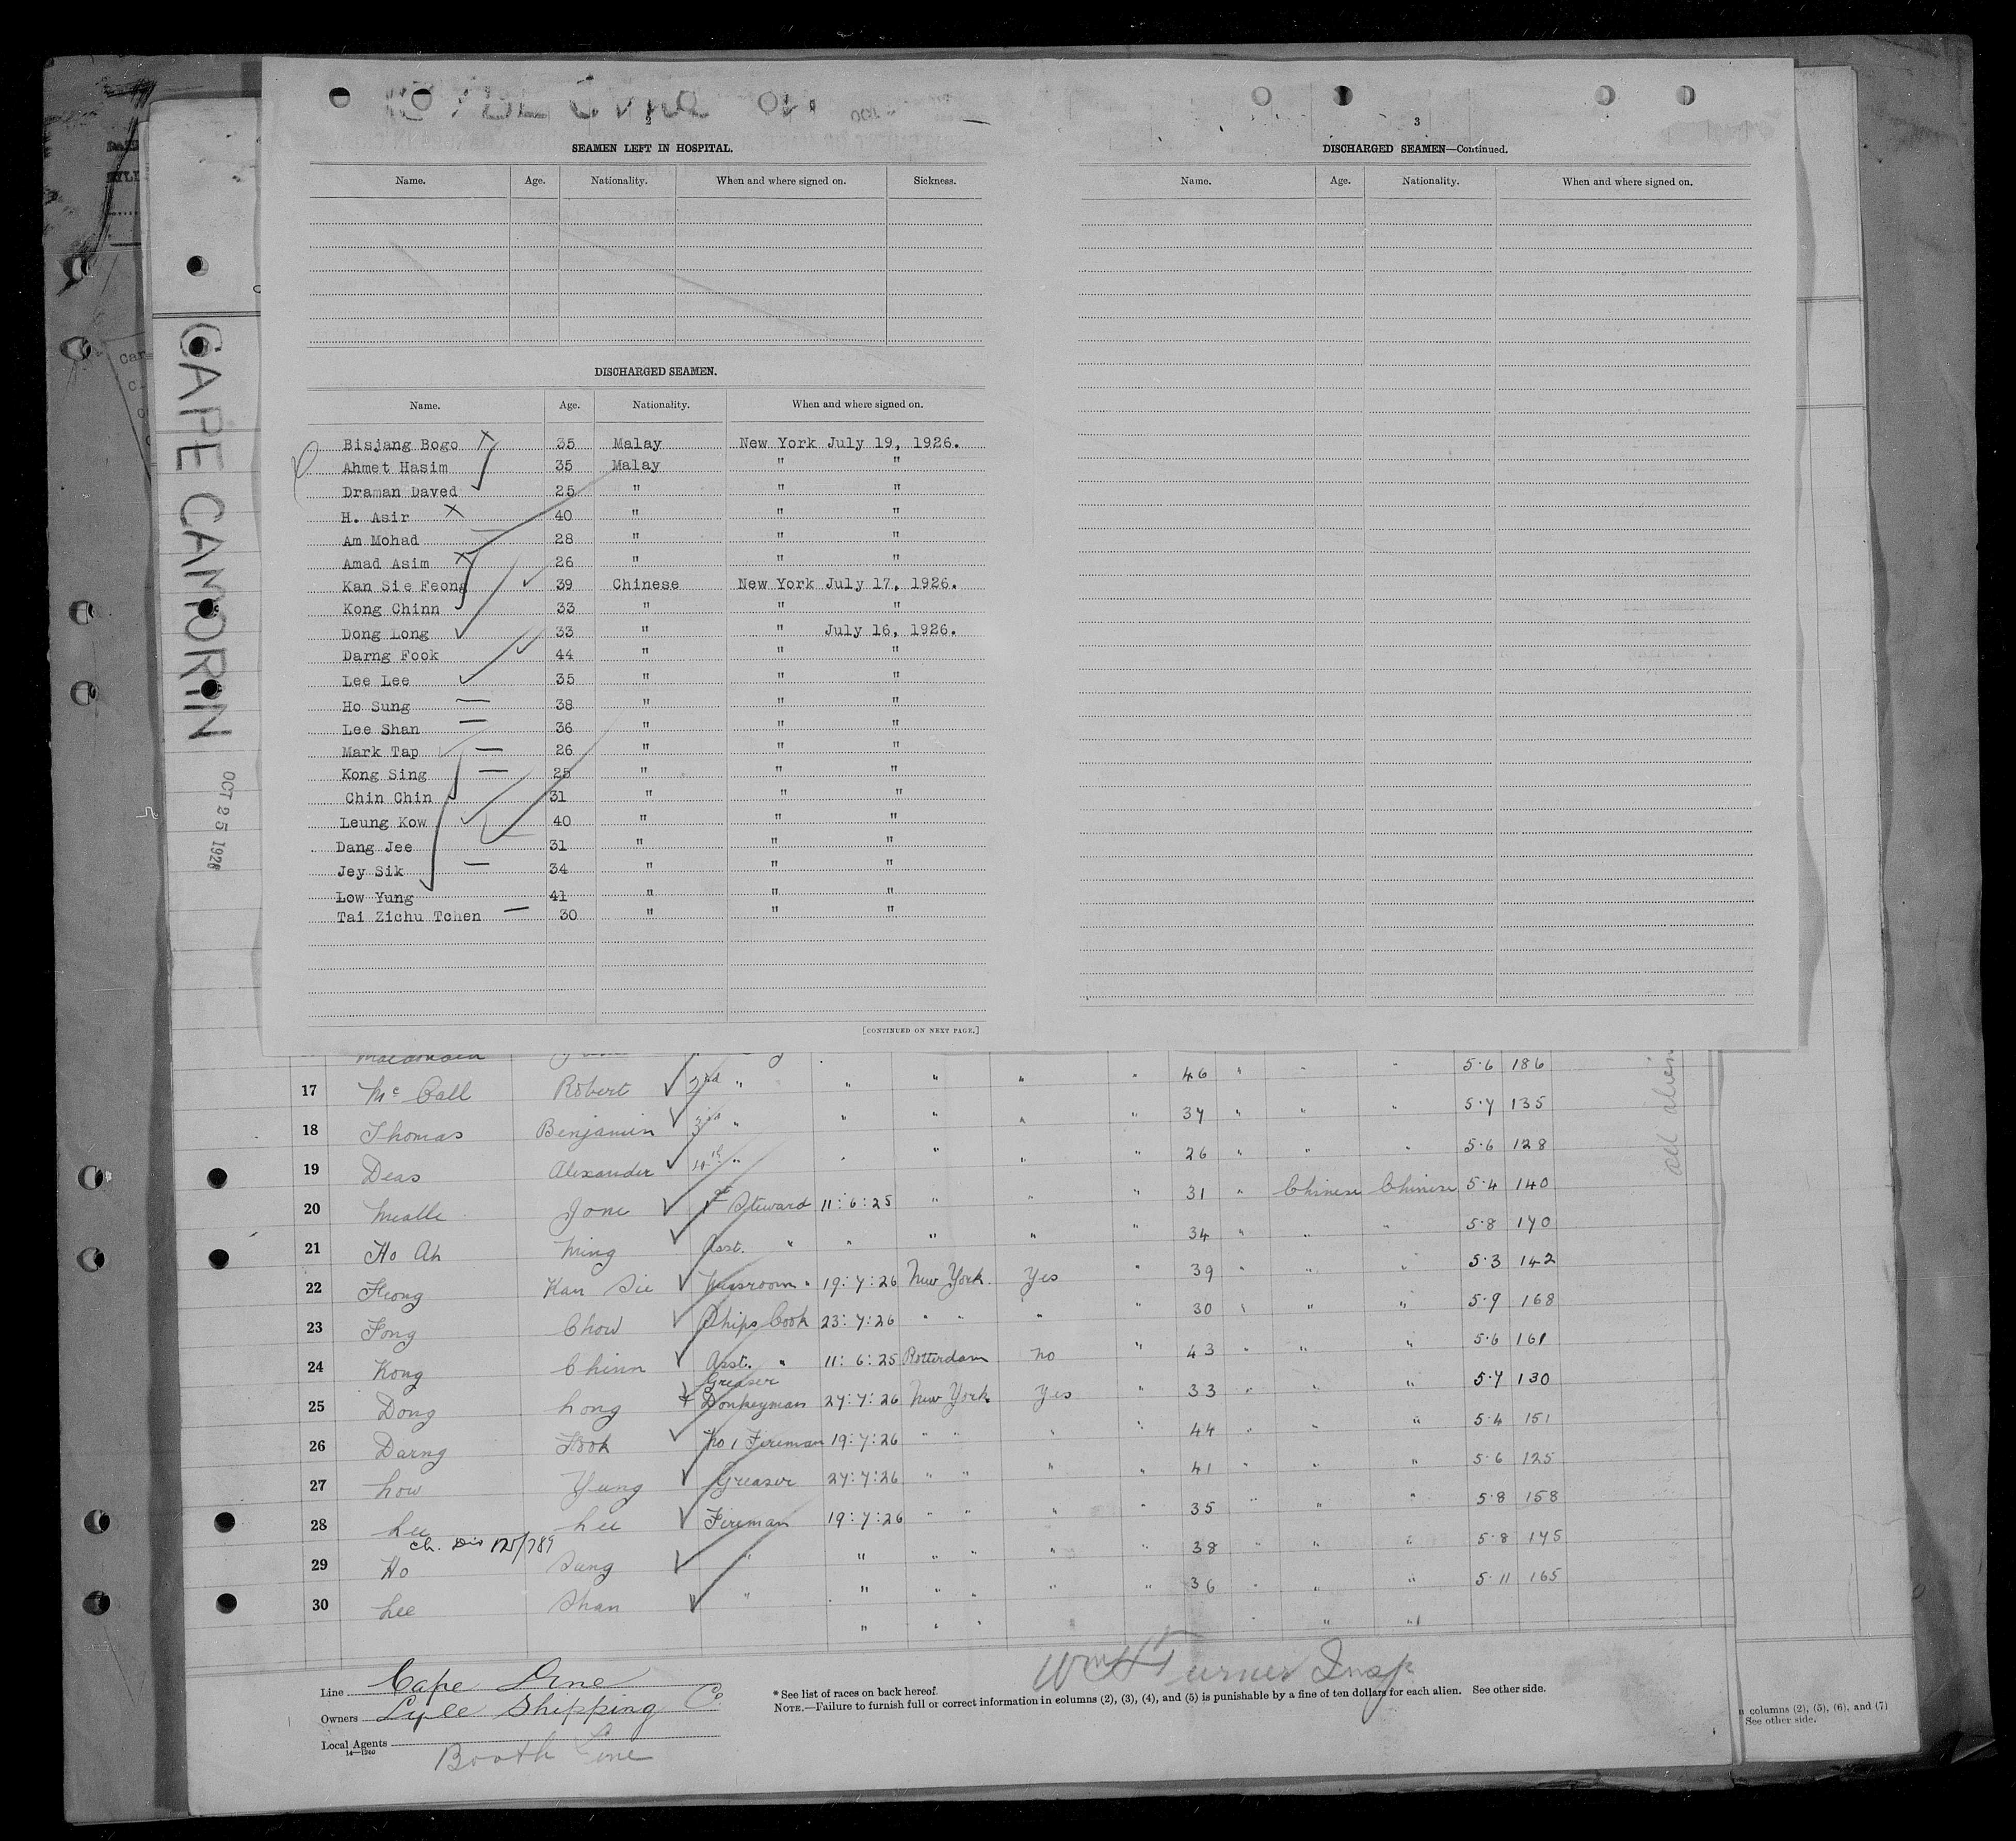 CAPE CAMORIN
OCT 25 1926
2
SEAMEN LEFT IN HOSPITAL.
Name. Age. Nationality. When and where signed on. Sickness.
DISCHARGED SEAMEN.
Name. Age. Nationality. When and where signed on.
Bisjang Bogo 35 Malay New York July 19, 1926.
Ahmet Hasim 35 Malay " "
Draman Daved 25 " " "
H. Asir 40 " " "
Am Mohad 28 " " "
Amad Asim 26 " " "
Kan Sie Feong 39 Chinese New York July 17, 1926.
Kong Chinn 33 " " "
Dong Long 33 " " July 16, 1926.
Darng Fook 44 " " "
Lee Lee 35 " " "
Ho Sung 38 " " "
Lee Shan 36 " " "
Mark Tap 26 " " "
Kong Sing 25 " " "
Chin Chin 31 " " "
Leung Kow 40 " " "
Dang Jee 31 " " "
Jey Sik 34 " " "
Low Yung 41 " " "
Tai Zichu Tchen 30 " " "
[CONTINUED ON NEXT PAGE.]
3
DISCHARGED SEAMEN—Continued.
Name. Age. Nationality. When and where signed on.
5.6 186
17 McCall Robert 2nd " " " " " 46 " " " 5.7 135
18 Thomas Benjamin 3rd " " " " " 37 " " " 5.6 128
19 Deas Alexander 4th " " " " " 26 " " " 5.4 140
20 Jone 1st Steward 11:6:25 " " " 31 " Chinese Chinese 5.8 170
21 Ho Ah Ming Asst. " " " " " 34 " " " 5.3 142
22 Feong Kan Sie Messroom " 19:7:26 New York Yes " 39 " " " 5.9 168
23 Fong Chow Ships Cook 23:7:26 " " " " 30 " " " 5.6 161
24 Kong Chinn Asst. " 11:6:25 Rotterdam No " 43 " " " 5.7 130
25 Dong Long Greaser Donkeyman 27:7:26 New York Yes " 33 " " " 5.4 151
26 Darng Fook No 1 Fireman 19:7:26 " " " " 44 " " " 5.6 125
27 Low Yung Greaser 27:7:26 " " " " 41 " " " 5.8 158
28 Lee Lee Fireman 19:7:26 " " " " 35 " " " 5.8 175
Ch. Div 125/789
29 Ho Sung " " " " " " 38 " " " 5.11 165
30 Lee Shan " " " " " " 36 " " "
all aliens
Line Cape Line
Owners Lyle Shipping Co.
Local Agents Booth Line
14—1240
Wm H Turner Insp
* See list of races on back hereof.
NOTE.—Failure to furnish full or correct information in columns (2), (3), (4), and (5) is punishable by a fine of ten dollars for each alien. See other side.
n columns (2), (5), (6), and (7)
See other side.